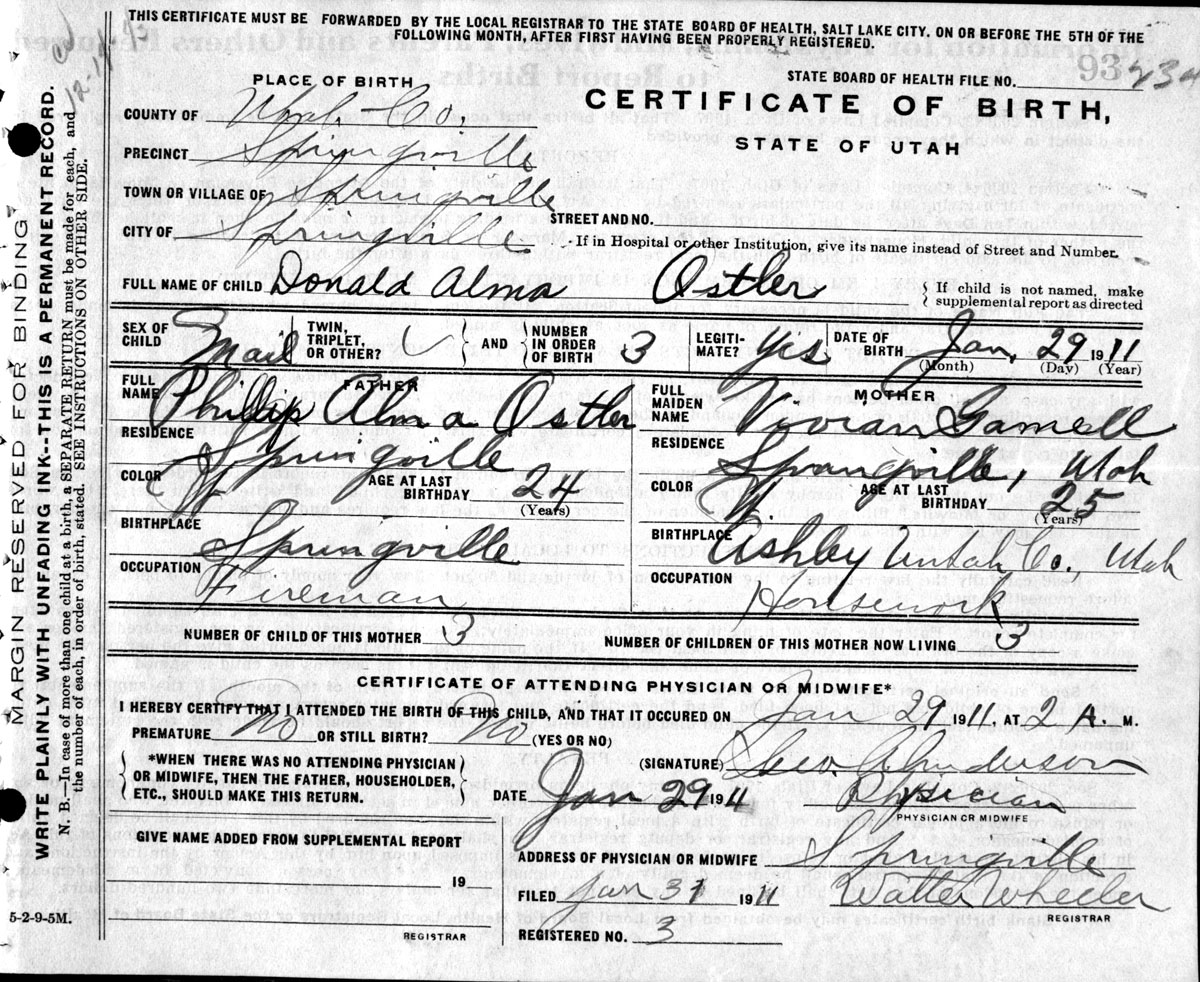 THIS CERTIFICATE MUST BE FORWARDED BY THE LOCAL REGISTRAR TO THE STATE BOARD OF HEALTH, SALT LAKE CITY. ON OR BEFORE THE 5TH OF THE
FOLLOWING MONTH, AFTER FIRST HAVING BEEN PROPERLY REGISTERED.
PLACE OF BIRTH
STATE BOARD OF HEALTH FILE NO. 93 234
CERTIFICATE OF BIRTH,
STATE OF UTAH
COUNTY OF Utah Co.
PRECINCT Springville
TOWN OR VILLAGE OF Springville
STREET AND NO.
CITY OF Springville
If in Hospital or other Institution, give its name instead of Street and Number.
FULL NAME OF CHILD Donald Alma Ostler
If child is not named, make
supplemental report as directed
SEX OF CHILD Mail TWIN, TRIPLET, OR OTHER? AND NUMBER IN ORDER OF BIRTH 3 LEGITI- MATE? Yes DATE OF BIRTH Jan, 29 1911
(Month) (Day) (Year)
FATHER
FULL NAME Phillip Alma Ostler
RESIDENCE Springville
COLOR W. AGE AT LAST BIRTHDAY 24
(Years)
BIRTHPLACE Springville
OCCUPATION Fireman
MOTHER
FULL MAIDEN NAME Vivian Gamell
RESIDENCE Springville, Utah
COLOR W. AGE AT LAST BIRTHDAY 25
(Years)
BIRTHPLACE Ashley Untah Co. Utah
OCCUPATION Housework
NUMBER OF CHILD OF THIS MOTHER 3 NUMBER OF CHILDREN OF THIS MOTHER NOW LIVING 3
CERTIFICATE OF ATTENDING PHYSICIAN OR MIDWIFE*
I HEREBY CERTIFY THAT I ATTENDED THE BIRTH OF THIS CHILD, AND THAT IT OCCURED ON Jan 29 1911, AT 2 A. M.
PREMATURE No OR STILL BIRTH? No (YES OR NO)
(SIGNATURE) Geo. Anderson
*WHEN THERE WAS NO ATTENDING PHYSICIAN
OR MIDWIFE, THEN THE FATHER, HOUSEHOLDER,
ETC., SHOULD MAKE THIS RETURN.
DATE Jan 29 1911 Physician
PHYSICIAN OR MIDWIFE
GIVE NAME ADDED FROM SUPPLEMENTAL REPORT
19
REGISTRAR
ADDRESS OF PHYSICIAN OR MIDWIFE Springville
FILED Jan 31 1911 Walter Wheeler
REGISTRAR
REGISTERED NO. 3
5-2-9-5M.
MARGIN RESERVED FOR BINDING
WRITE PLAINLY WITH UNFADING INK--THIS IS A PERMANENT RECORD.
N. B.—In case of more than one child at a birth, a SEPARATE RETURN must be made for each, and
the number of each, in order of birth, stated. SEE INSTRUCTIONS ON OTHER SIDE.